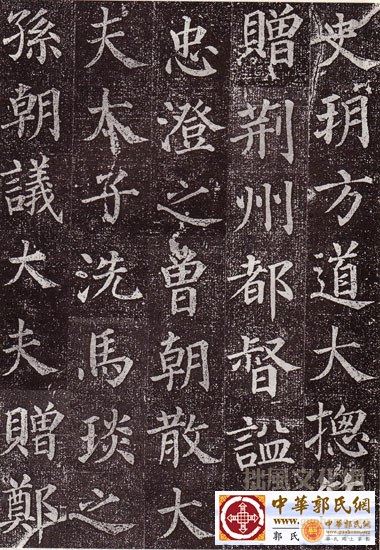 史朔方道大揔
贈荊州都督謚
忠澄之曾朝散大
夫太子洗馬琰之
孫朝議大夫贈鄭
中華郭氏網
www.
郭氏